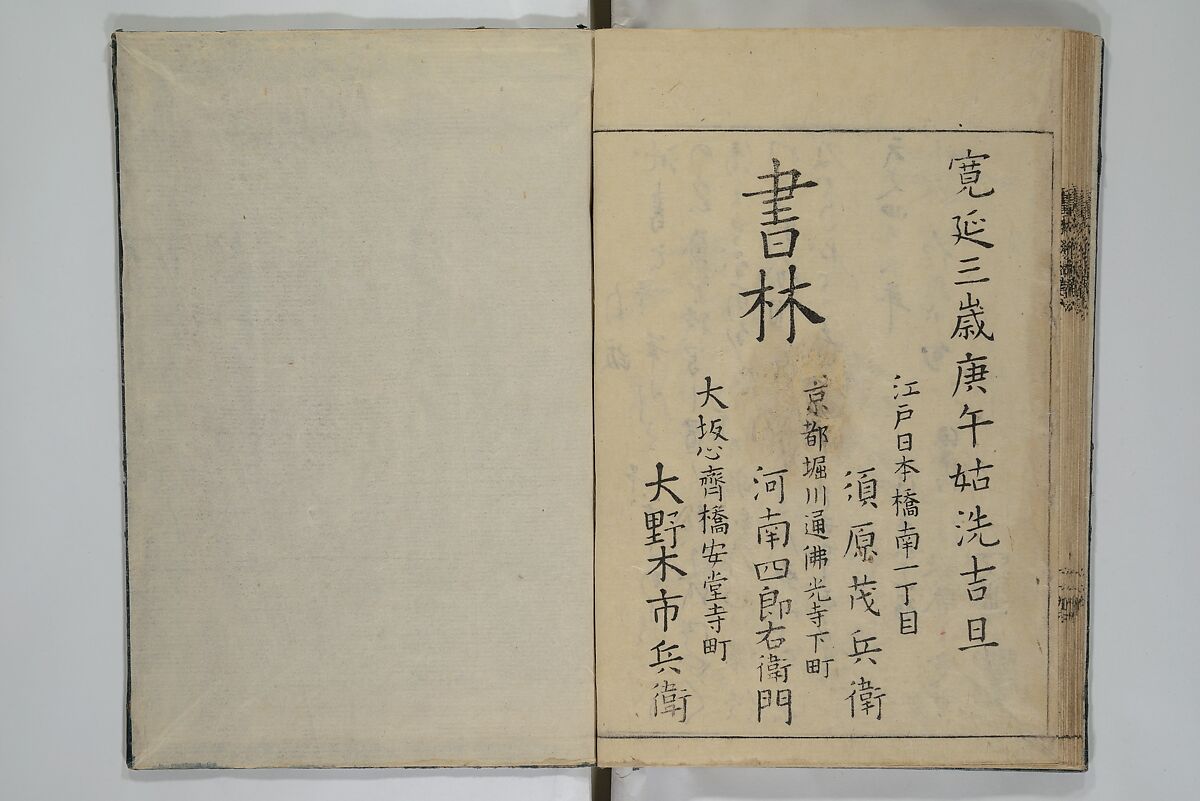 寛延三歳庚午姑洗吉旦
江戸日本橋南一丁目
須原茂兵衛
書林
京都堀川通佛光寺下町
河南四郎右衛門
大坂心齊橋安堂寺町
大野木市兵衛